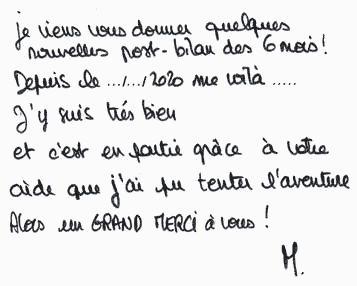 je viens vous donner quelques
nouvelles post-bilan des 6 mois !
Depuis le .../.../2020 me voilà .....
J'y suis très bien
et c'est en partie grâce à votre
aide que j'ai pu tenter l'aventure
Alors un GRAND MERCI à vous !
M.